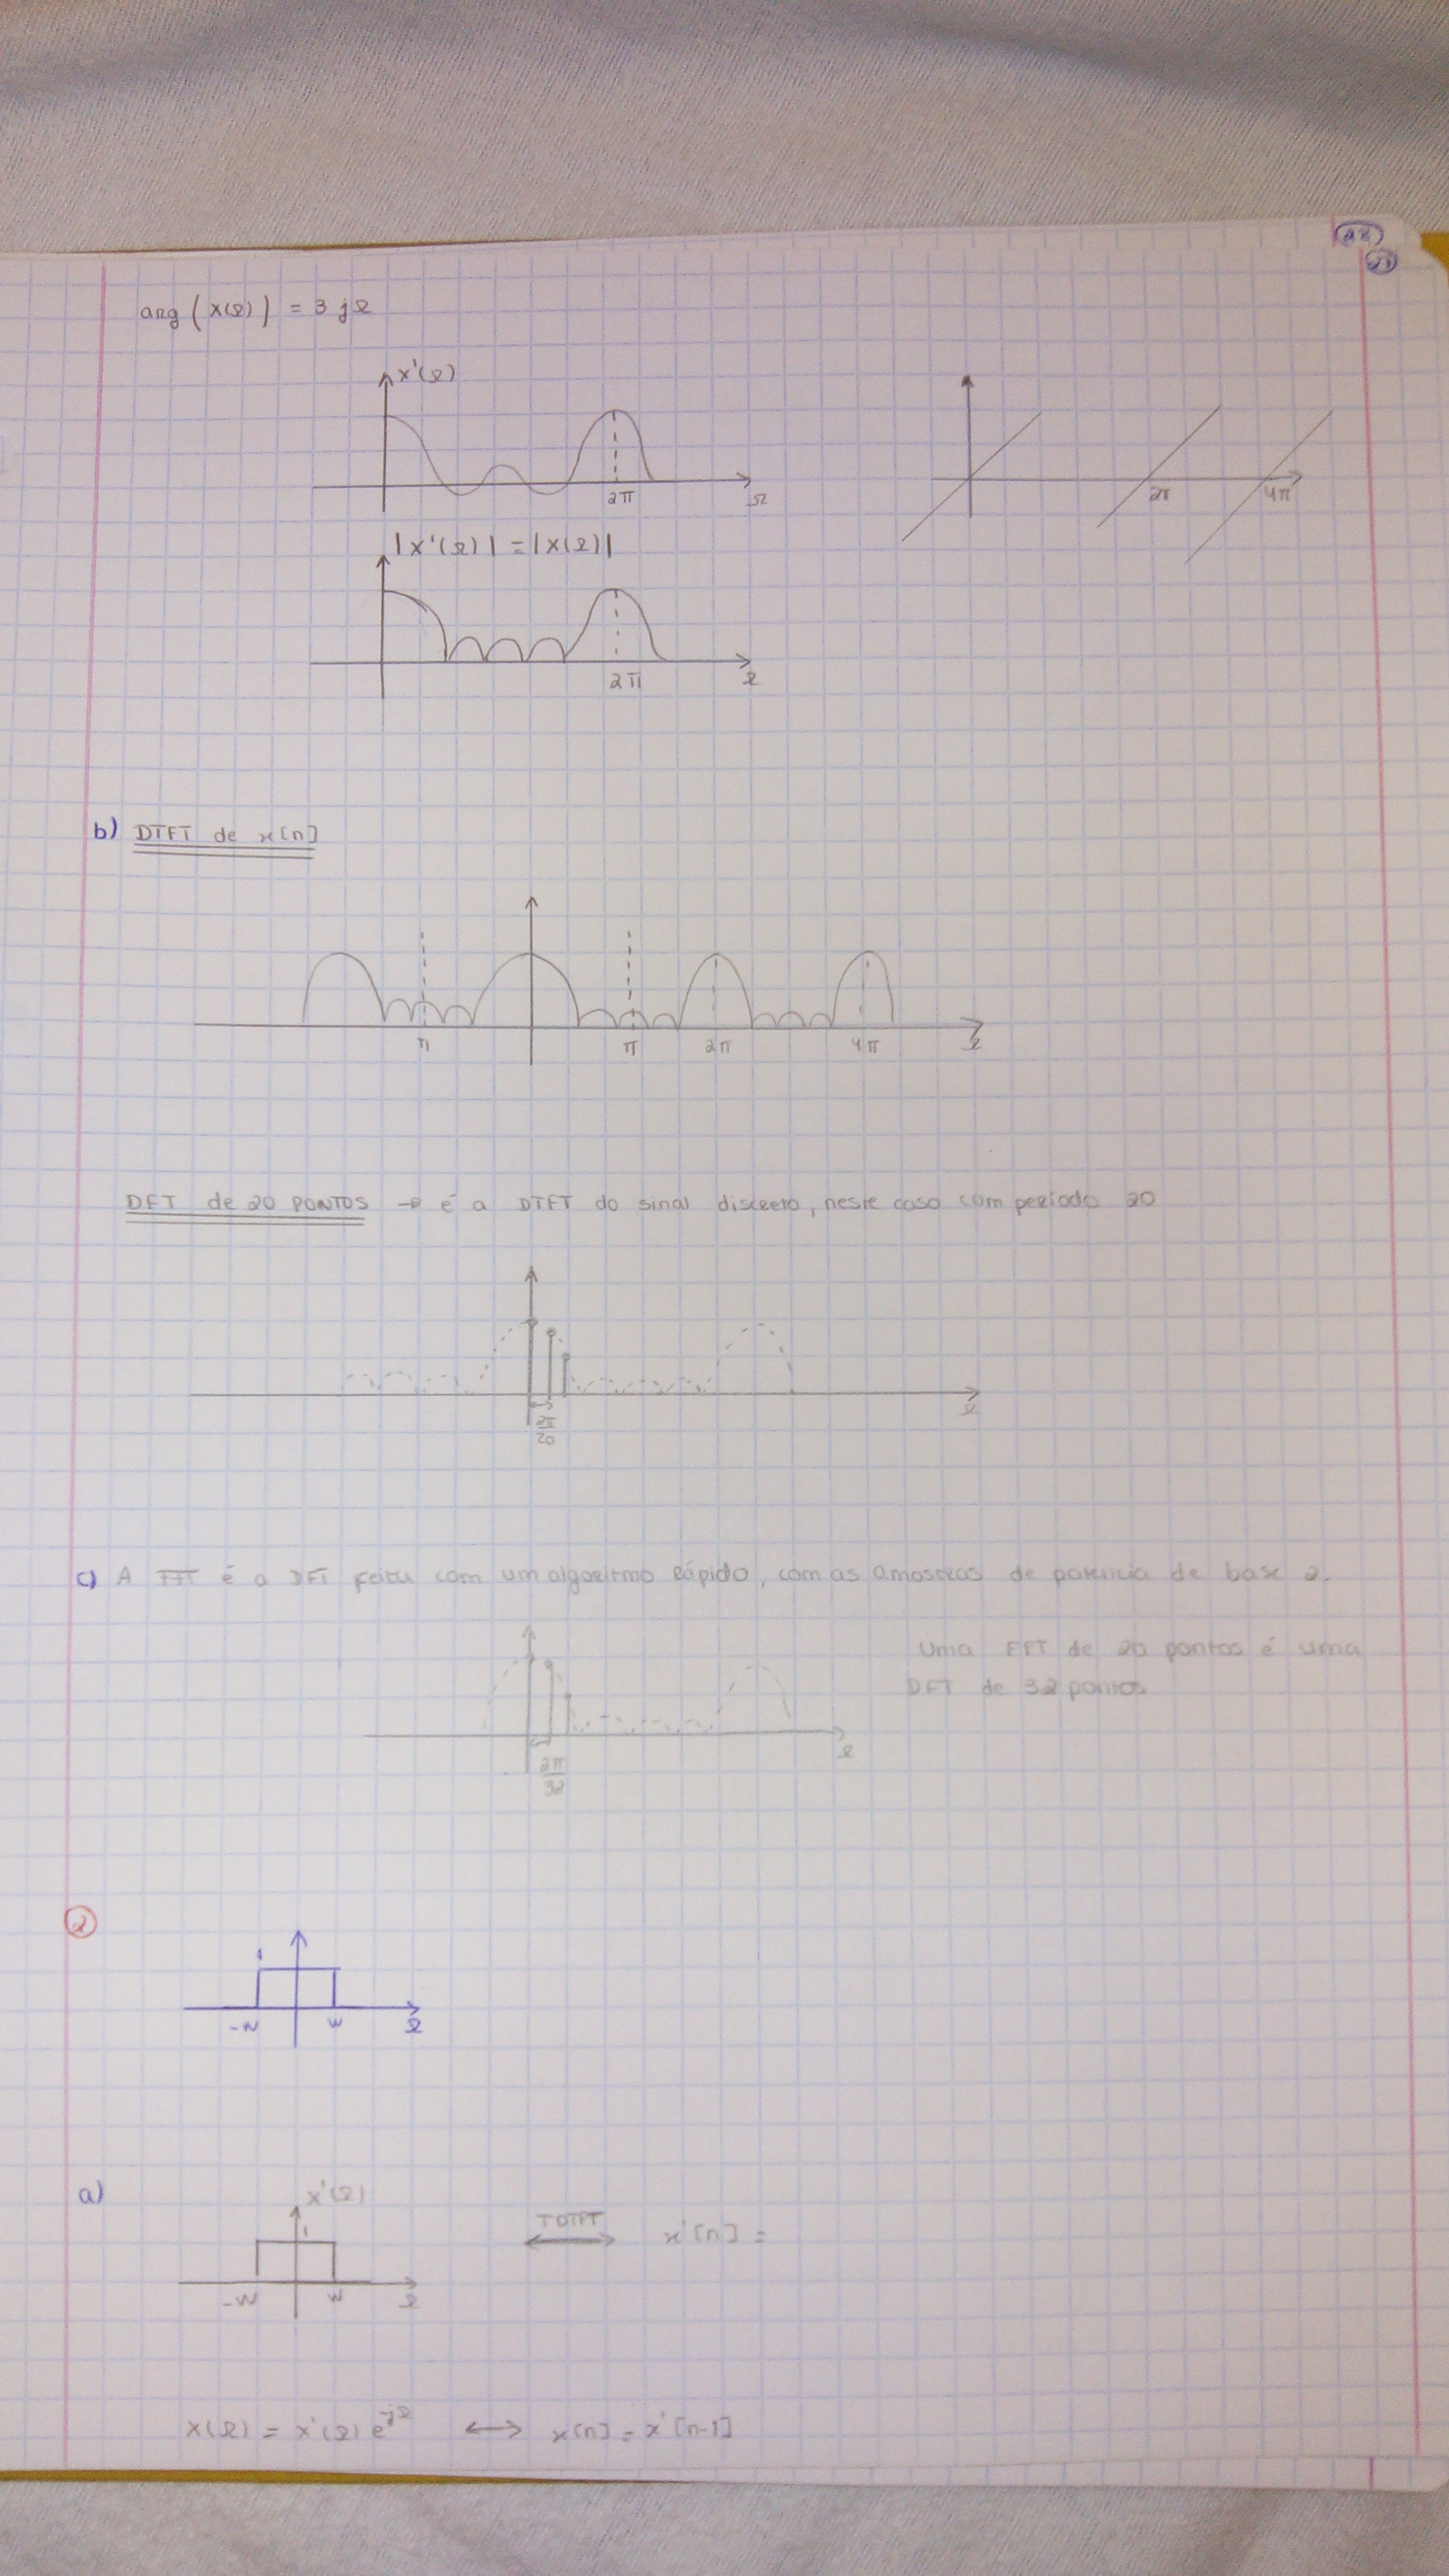 22
21
arg (X(Ω)) = 3 jΩ
X'(Ω)
2π
Ω
2π
4π
|X'(Ω)| = |X(Ω)|
2π
Ω
b) DTFT de x[n]
π
π
2π
4π
Ω
DFT de 20 PONTOS → é a DTFT do sinal discreto, neste caso com período 20
2π/20
Ω
c) A FFT é a DFT feita com um algoritmo rápido, com as amostras de potencia de base 2.
Uma FFT de 20 pontos é uma
DFT de 32 pontos
2π/32
Ω
2
1
-W
W
Ω
a)
X'(Ω)
1
-W
W
Ω
x'[n] =
X(Ω) = X'(Ω) e^-jΩ ↔ x[n] = x'[n-1]